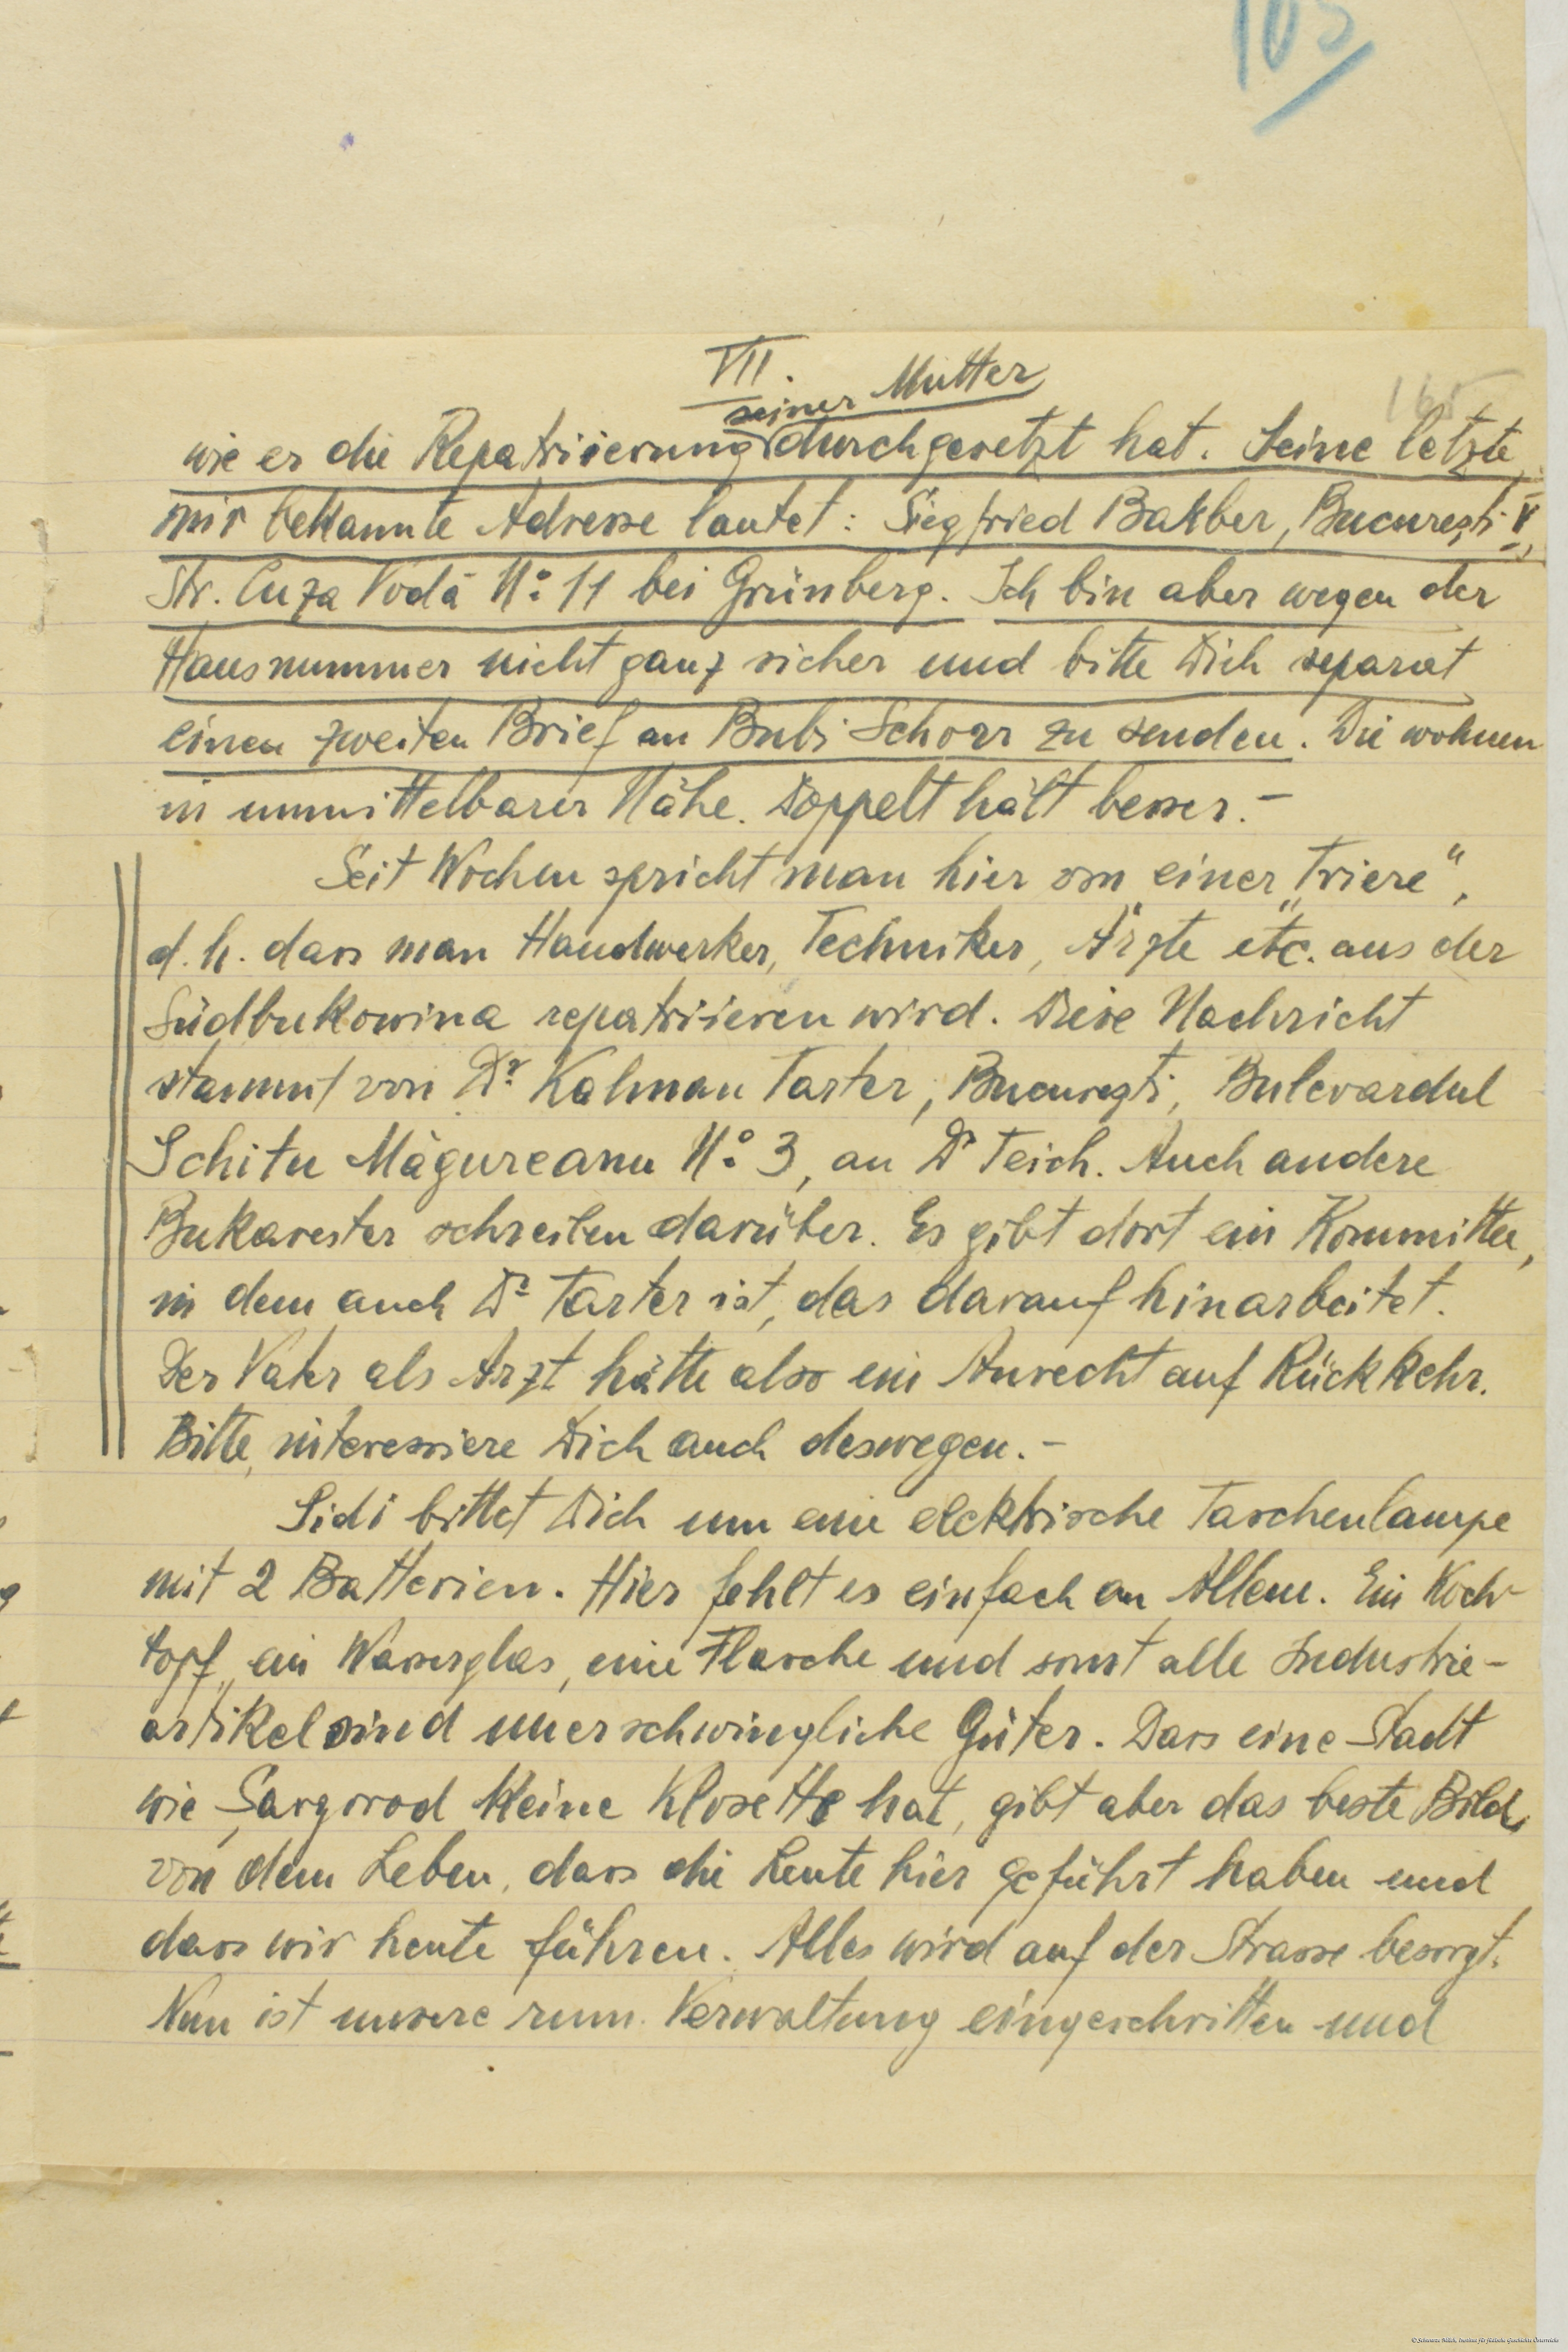 105
VII.
165
seiner Mutter
wie er die Repatriierung durchgesetzt hat. Seine letzte
mir bekannte Adresse lautet: Siegfried Bakber, Bucureşti V,
Str. Cuza Vodă No 11 bei Grünberg. Ich bin aber wegen der
Hausnummer nicht ganz sicher und bitte Dich separat
einen zweiten Brief an Bubi Schorr zu senden. Die wohnen
in unmittelbarer Nähe. Doppelt hält besser.-
Seit Wochen spricht man hier von einer „Triere",
d. h. dass man Handwerker, Techniker, Ärzte etc. aus der
Südbukowina repatriieren wird. Diese Nachricht
stammt von Dr Kalman Tarter, Bucureşti, Bulevardul
Schitu Măgureanu No 3, an Dr Teich. Auch andere
Bukarester schreiben darüber. Es gibt dort ein Kommittee,
in dem auch Dr Tarter ist, das darauf hinarbeitet.
Der Vater als Arzt hätte also ein Anrecht auf Rückkehr.
Bitte, interessiere Dich auch deswegen.-
Sidi bittet Dich um eine elektrische Taschenlampe
mit 2 Batterien. Hier fehlt es einfach an Allem. Ein Koch-
topf, ein Wasserglas, eine Flasche und sonst alle Industrie-
artikel sind unerschwingliche Güter. Dass eine Stadt
wie Şargorod keine Klosette hat, gibt aber das beste Bild,
von dem Leben, dass die Leute hier geführt haben und
dass wir heute führen. Alles wird auf der Strasse besorgt.
Nun ist unsere rum. Verwaltung eingeschritten und